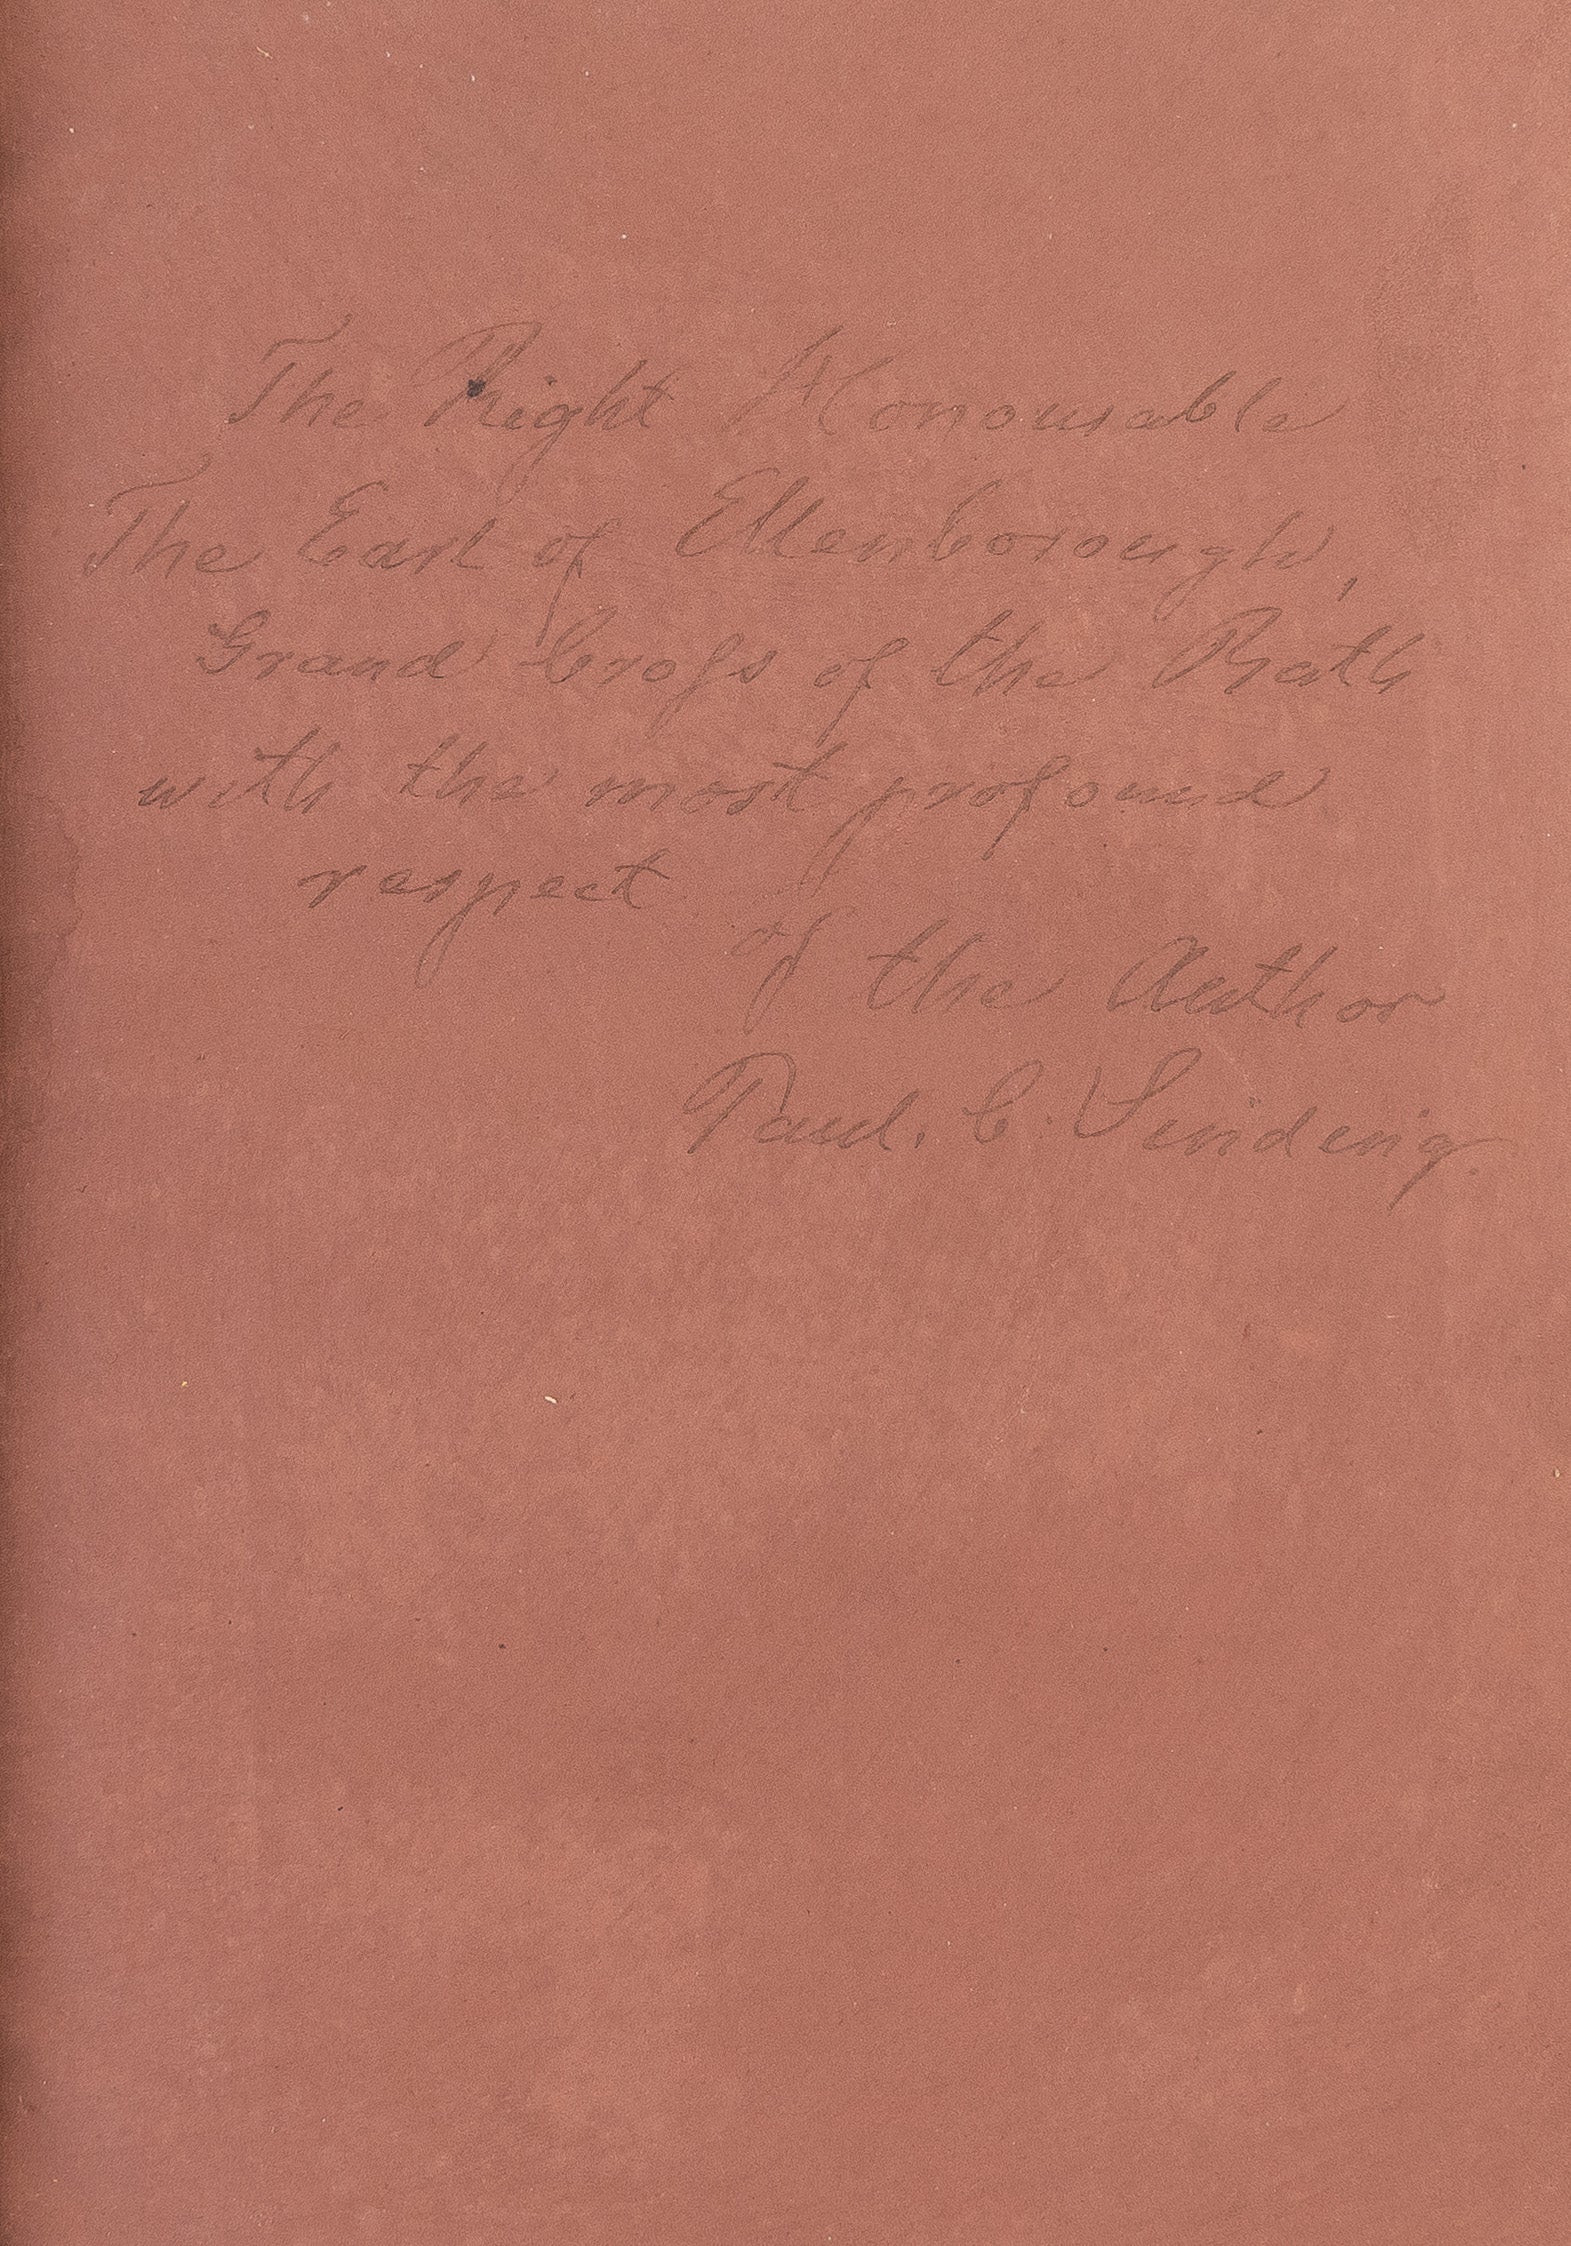 The Right Honourable
The Earl of Ellenborough,
Grand Croſs of the Bath
with the most profound
respect
of the Author
Paul. C. Sinding.